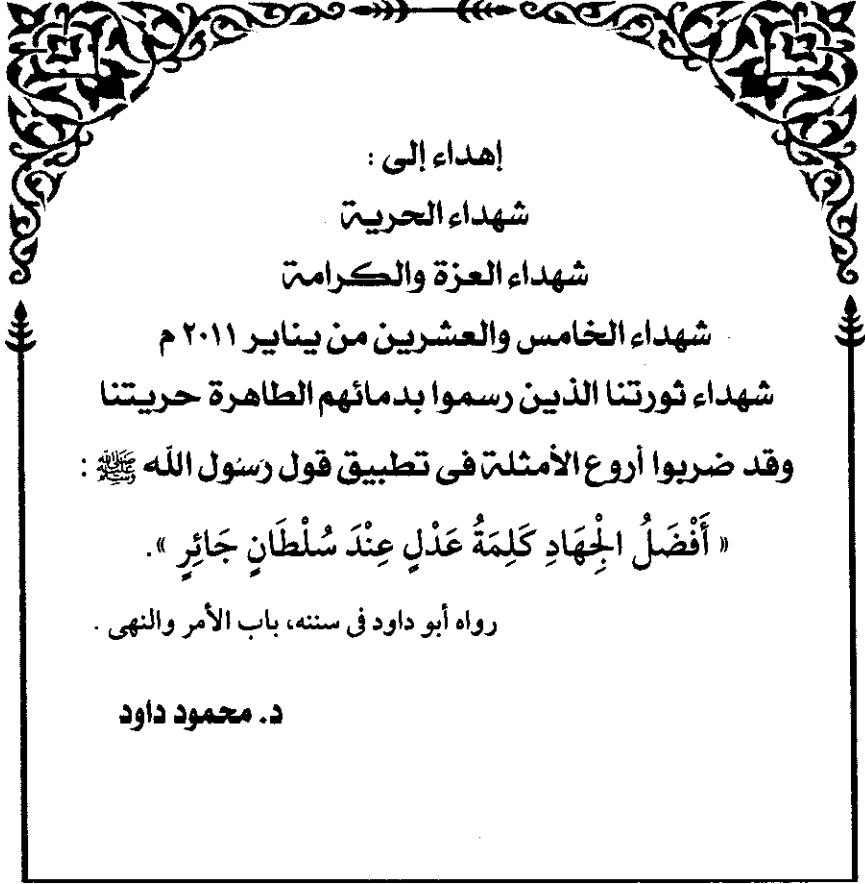 إهداء إلى :
شهداء الحرية
شهداء العزة والكرامة
شهداء الخامس والعشرين من يناير ٢٠١١ م
شهداء ثورتنا الذين رسموا بدمائهم الطاهرة حريتنا
وقد ضربوا أروع الأمثلة فى تطبيق قول رَسُول اللّه ﷺ :
« أَفْضَلُ الْجِهَادِ كَلِمَةُ عَدْلٍ عِنْدَ سُلْطَانٍ جَائِرٍ ».
رواه أبو داود فى سننه، باب الأمر والنهى .
د. محمود داود